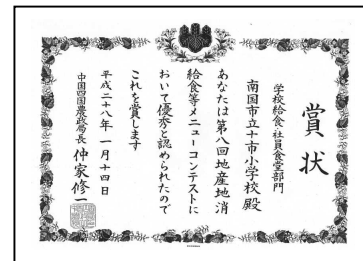 賞状
学校給食・社員食堂部門
南国市立十市小学校殿
あなたは第八回地産地消
給食等メニューコンテストに
おいて優秀と認められたので
これを賞します
平成二十八年一月十四日
中国四国農政局長 仲家修一